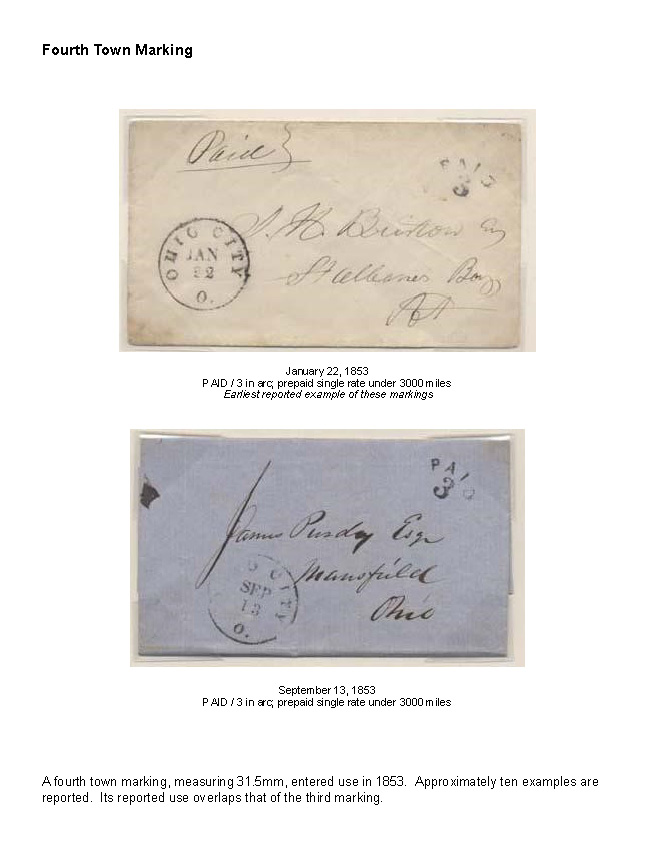 Fourth Town Marking
Paid
PAID
3
OHIO CITY
JAN
22
O.
St albans Bay
January 22, 1853
PAID / 3 in arc; prepaid single rate under 3000 miles
Earliest reported example of these markings
PAID
3
James Purdy Esqr
Mansfield
Ohio
O CITY
SEP
13
O.
September 13, 1853
PAID / 3 in arc; prepaid single rate under 3000 miles
A fourth town marking, measuring 31.5mm, entered use in 1853. Approximately ten examples are
reported. Its reported use overlaps that of the third marking.